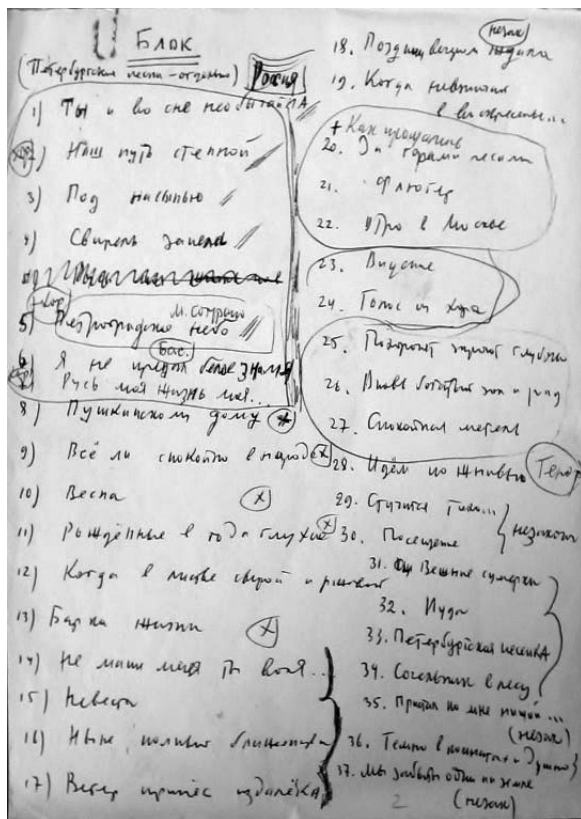 Блок
(Петербургские песни - отдельно) Россия
1) Ты и во сне необычайна
хор 2) Наш путь степной
3) Под насыпью
4) Свирель запела
+ хор
5) Петроградское небо
Бас.
6) Я не предал белое знамя
7) Русь моя жизнь моя...
8) Пушкинскому дому
9) Всё ли спокойно в народе x
10) Весна x
11) Рождённые в года глухие x
12) Когда в листве сырой и ржавой
13) Барка жизни x
14) Не мани меня ты воля..
15) Невеста
16) Ныне, полный блаженства
17) Ветер принёс издалёка
18. Поздний вечером ждала
(незак)
19. Когда невзначай
в воскресенье...
+ Как прощались
20. За горами лесами
21. Флюгер
22. Утро в Москве
23. Видение
24. Голос из хора
25. Похоронят, зароют глубоко
26. Вновь богатый зол и рад
27. Спокойная метель
28. Идём по жнивью Тенор
29. Стучится тихо...
30. Посещение
незакон
31. Вешние сумерки
32. Иуда
33. Петербургская песенка
34. Сочельник в лесу
35. Пристал ко мне нищий...
(незак)
36. Темно в комнатах и душно
37. Мы забыты одни на земле
2 (незак)